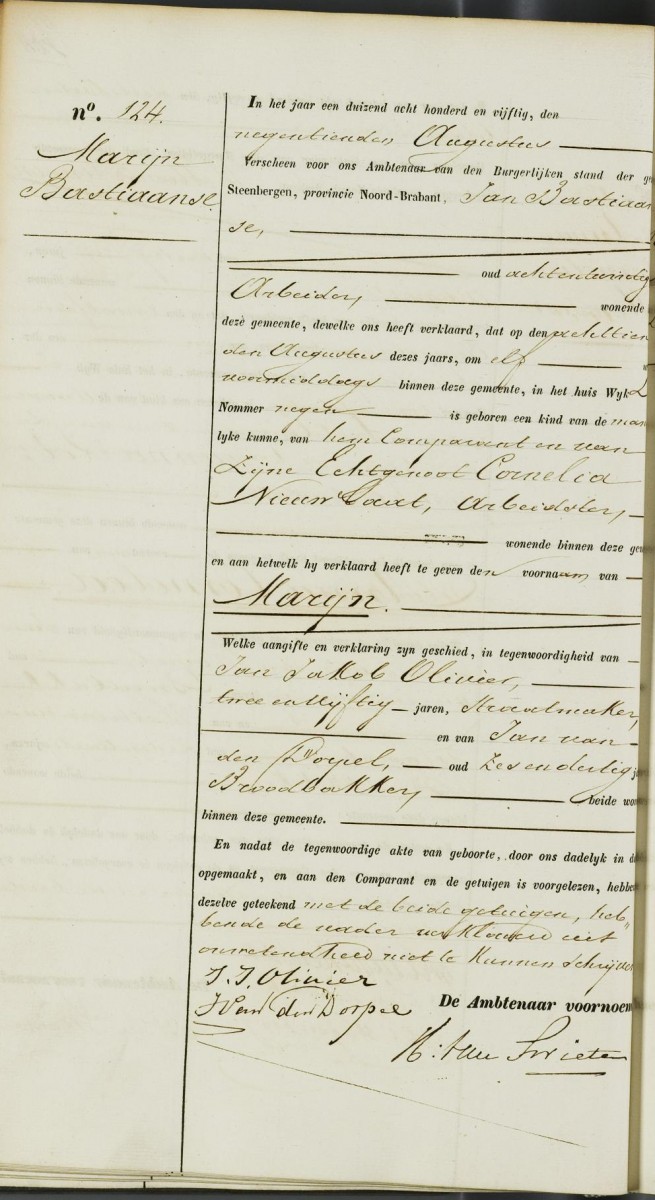 nº. 124.
Marijn
Bastiaanse
In het jaar een duizend acht honderd en vijftig, den
negentienden Augustus
Verscheen voor ons Ambtenaar van den Burgerlijken stand der
Steenbergen, provincie Noord-Brabant, Jan Bastiaan
se,
oud achtentwintig
Arbeider, wonende
deze gemeente, dewelke ons heeft verklaard, dat op den achttien
den Augustus dezes jaars, om elf
voormiddags binnen deze gemeente, in het huis Wyk L
Nommer negen is geboren een kind van de man
lyke kunne, van hem Comparant en van
Zijne Echtgenoot Cornelia
Nieuwlaat, Arbeidster,
wonende binnen deze
en aan hetwelk hy verklaard heeft te geven den voornaam van
Marijn.
Welke aangifte en verklaring zyn geschied, in tegenwoordigheid van
Jan Jakob Olivier,
twee en vijftig jaren, Stroatmaker,
en van Jan van
den Dorpel, oud Zesendertig
Broodbakker, beide
binnen deze gemeente.
En nadat de tegenwoordige akte van geboorte, door ons dadelyk in
opgemaakt, en aan den Comparant en de getuigen is voorgelezen, hebben
dezelve geteekend met de beide getuigen, heb"
bende de vader verklaard uit
onwetendheid niet te kunnen schrijven
J. J. Olivier
J Van den Dorpel De Ambtenaar voornoem
H: van Swieten